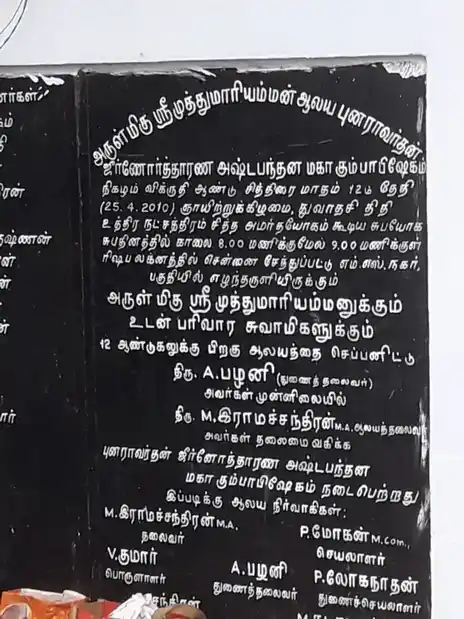 அருள்மிகு ஸ்ரீமுத்துமாரியம்மன் ஆலய புனராவர்தன
ஜீர்ணோர்த்தாரண அஷ்டபந்தன மகா கும்பாபிஷேகம்
நிகழும் விக்ருதி ஆண்டு சித்திரை மாதம் 12ம் தேதி
(25.4.2010) ஞாயிற்றுக்கிழமை, துவாதசி திதி
உத்திர நட்சத்திரம் சித்த அமர்தயோகம் கூடிய சுபயோக
சுபதினத்தில் காலை 8.00 மணிக்குமேல் 9.00 மணிக்குள்
ரிஷப லக்னத்தில் சென்னை சேத்துப்பட்டு எம்.எஸ்.நகர்,
பகுதியில் எழுந்தருளியிருக்கும்
அருள் மிகு ஸ்ரீ முத்துமாரியம்மனுக்கும்
உடன் பரிவார சுவாமிகளுக்கும்
12 ஆண்டுகளுக்கு பிறகு ஆலயத்தை செப்பனிட்டு
திரு. A.பழனி (துணைத் தலைவர்)
அவர்கள் முன்னிலையில்
திரு. M.இராமச்சந்திரன் M.A, ஆலயத்தலைவர்
அவர்கள் தலைமை வகிக்க
புனராவர்தன ஜீர்னோத்தாரண அஷ்டபந்தன
மகா கும்பாபிஷேகம் நடைபெற்றது
இப்படிக்கு ஆலய நிர்வாகிகள்:
M.இராமச்சந்திரன் M.A.
தலைவர்
P.மோகன் M.Com.,
செயலாளர்
V.குமார்
பொருளாளர்
A.பழனி
துணைத்தலைவர்
P.லோகநாதன்
துணைச்செயலாளர்